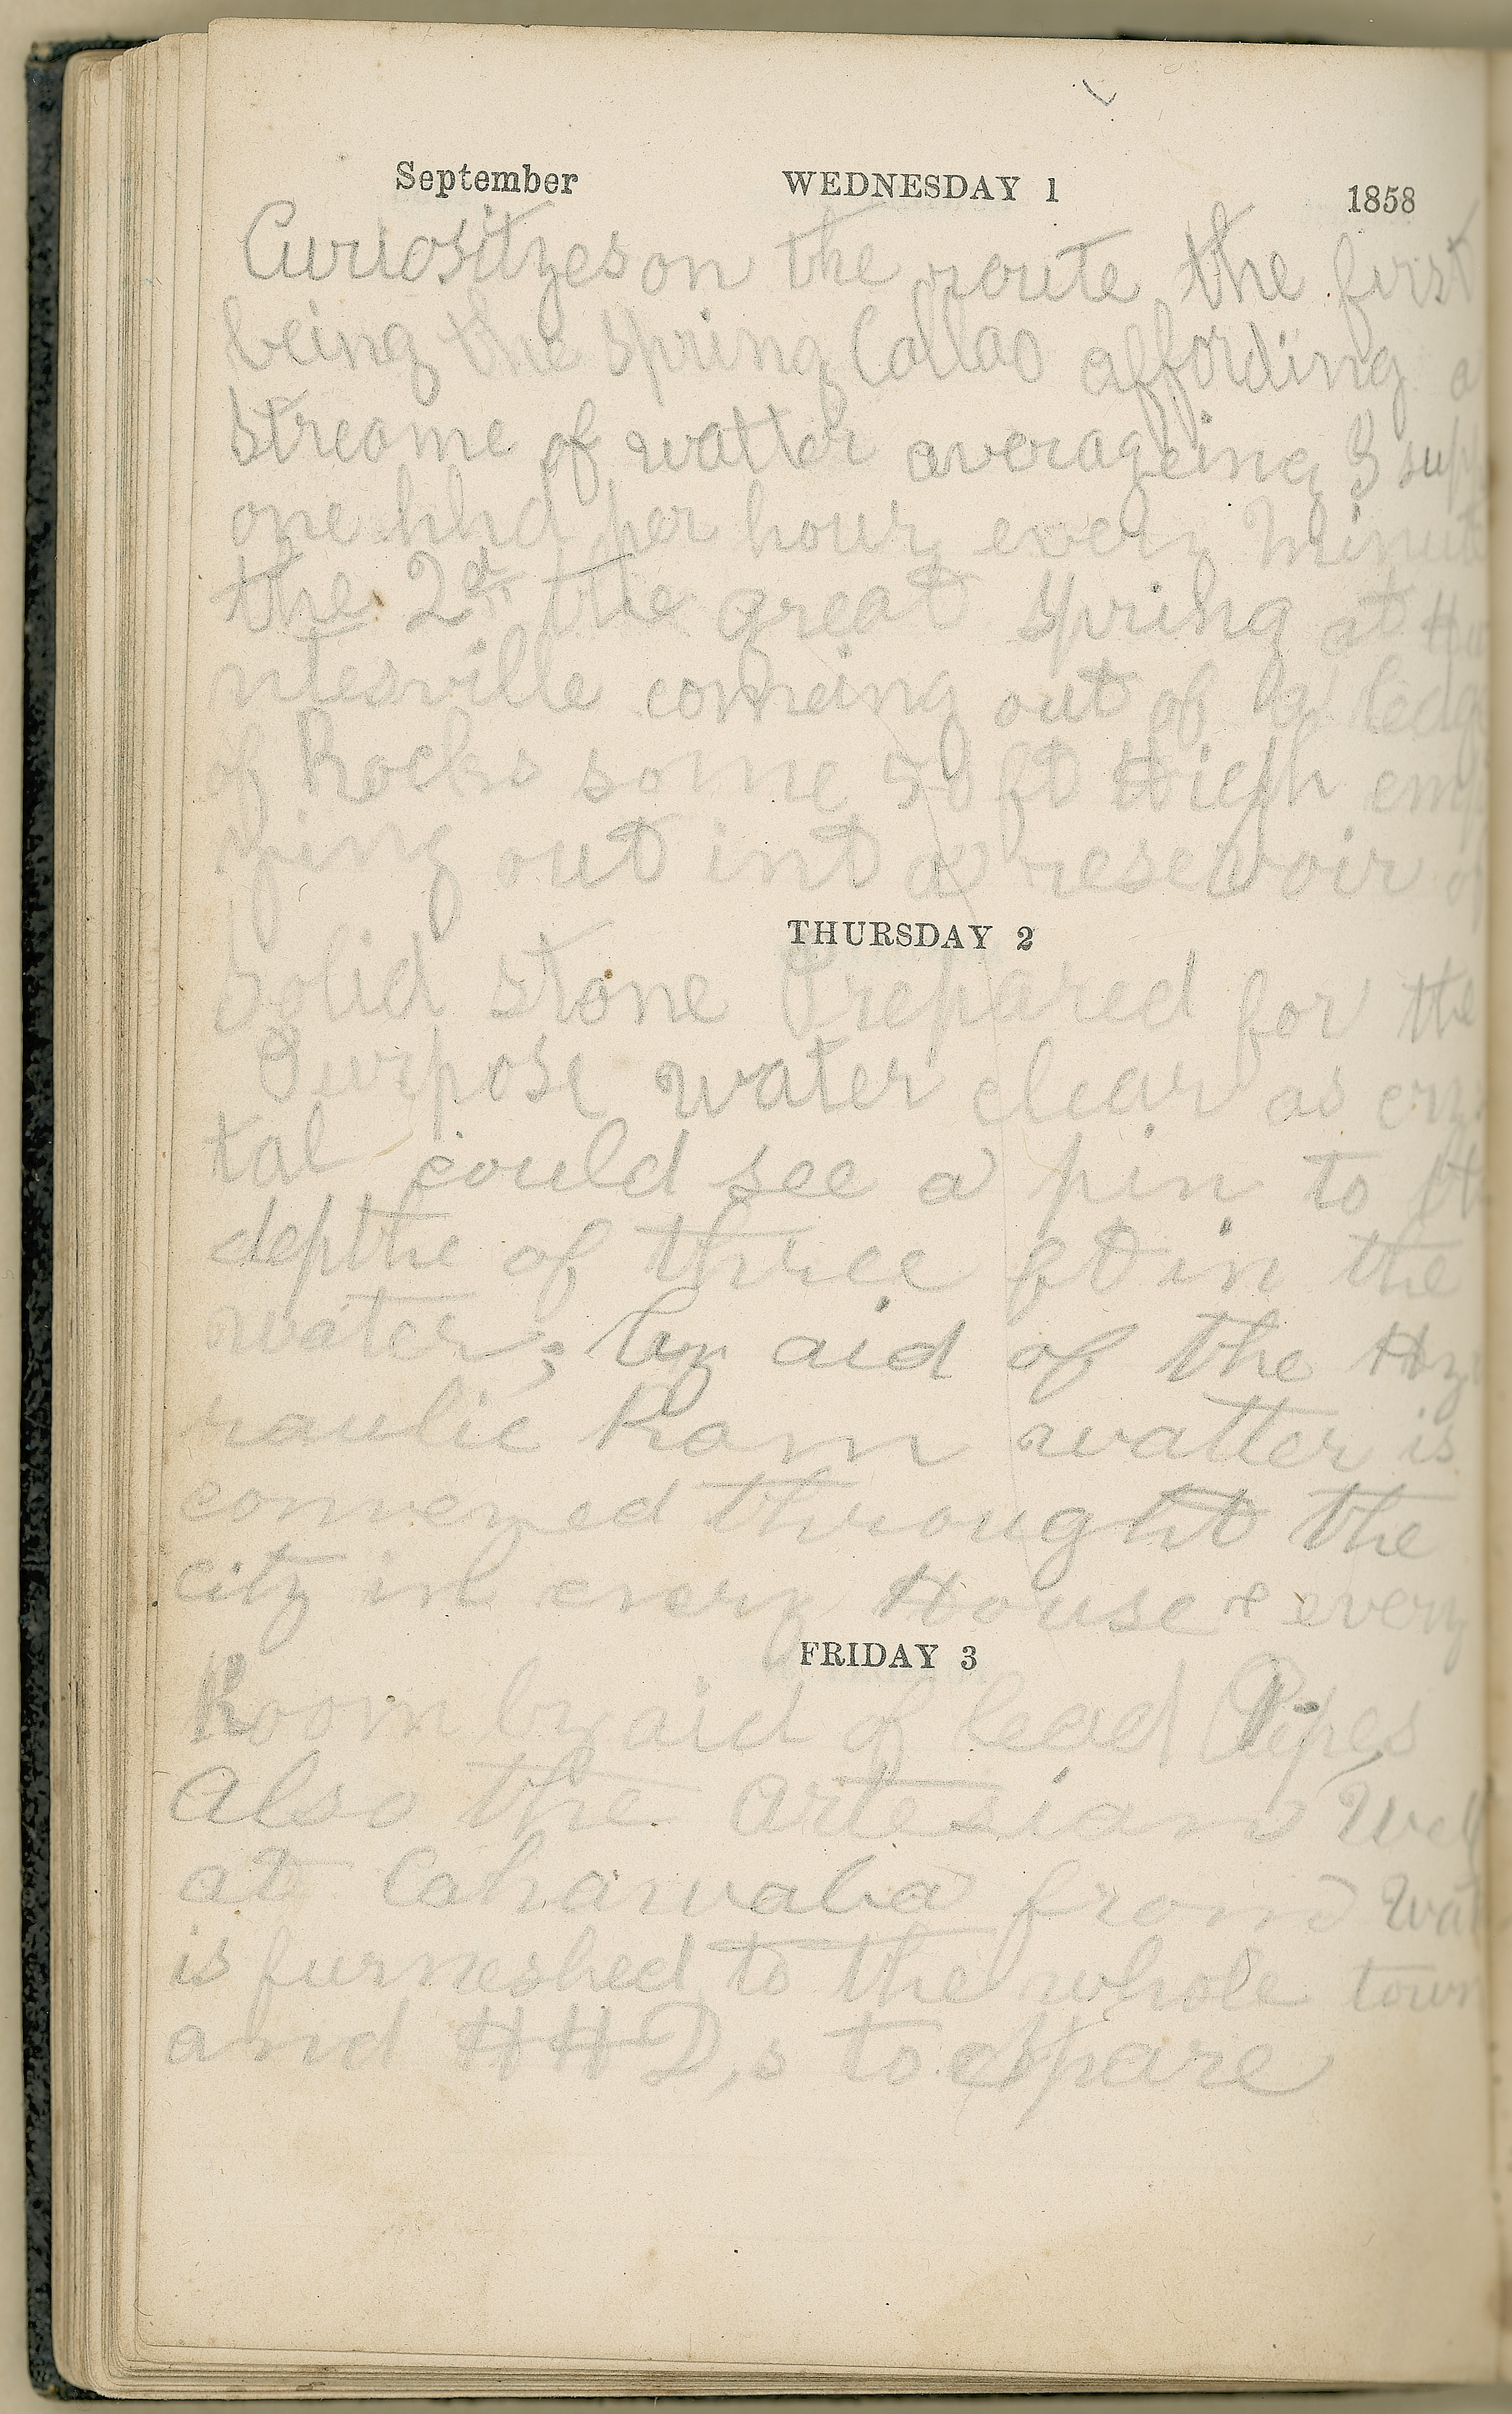 September WEDNESDAY 1 1858
Curiosityes on the route the first
being the Spring Callao affording a
streame of watter averageing & sup
one hhd per hour every Minute
the 2d the great Spring at Hu
ntesville comeing out of a ledge
of Rocks some 50 ft High emp
ying out int a resevoir of
THURSDAY 2
Solid stone Prepared for the
Purpose water clear as crys
tal could see a pin to
depthe of three ft in the
water; by aid of the Hyd
raulic Ram watter is
conveyed throught the
city in every House & every
FRIDAY 3
Room by aid of lead Pipes
Also the Artesian Well
at Cahawaba from Wat
is furneshed to the whole town
and HHD,s to Spare